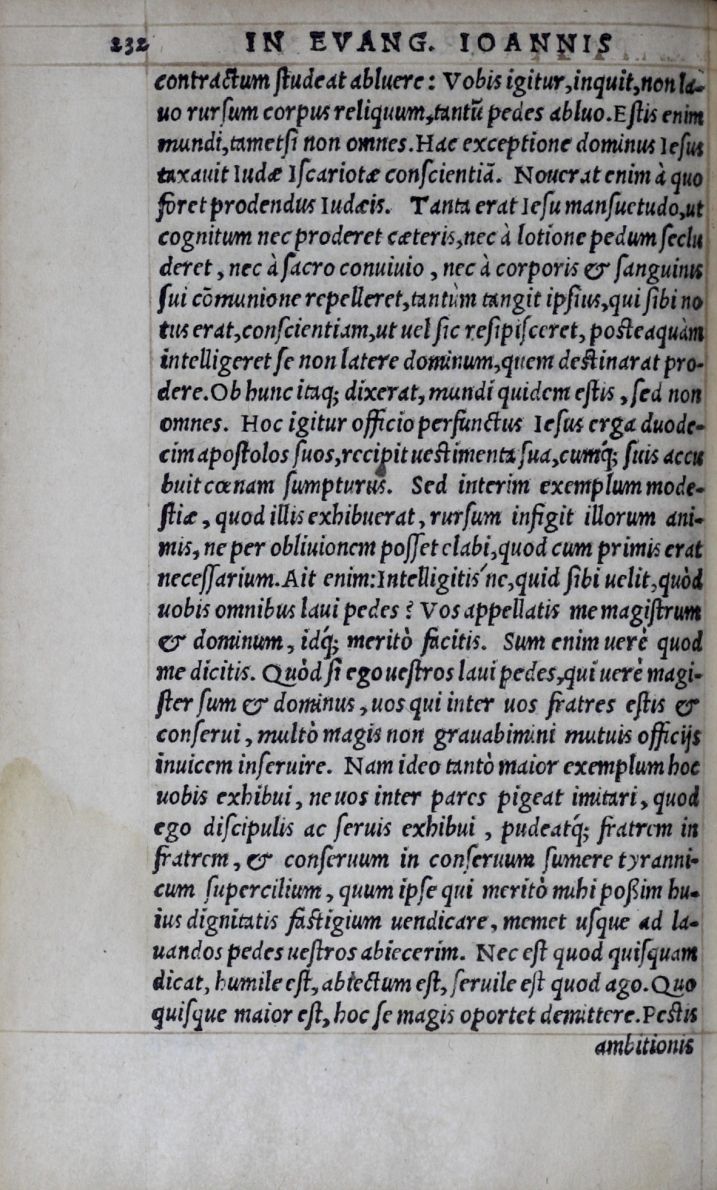 232 IN EVANG. IOANNIS
contractum ſtudeat abluere: Vobis igitur, inquit, non la-
uo rurſum corpus reliquum, tantũ pedes abluo. Eſtis enim
mundi, tametſi non omnes. Hac exceptione dominus Ieſus
taxauit Iudæ Iſcariotæ conſcientiã. Nouerat enim à quo
foret prodendus Iudæis. Tanta erat Ieſu manſuetudo, ut
cognitum nec proderet cæteris, nec à lotione pedum ſeclu
deret, nec à ſacro conuiuio, nec à corporis & ſanguinis
ſui cõmunione repelleret, tantùm tangit ipſius, qui ſibi no
tus erat, conſcientiam, ut uel ſic reſipiſceret, poſteaquàm
intelligeret ſe non latere dominum, quem deſtinarat pro-
dere. Ob hunc itaq; dixerat, mundi quidem eſtis, ſed non
omnes. Hoc igitur officio perfunctus Ieſus erga duode-
cim apoſtolos ſuos, recipit ueſtimenta ſua, cumq́; ſuis accu
buit cœnam ſumpturus. Sed interim exemplum mode-
ſtiæ, quod illis exhibuerat, rurſum infigit illorum ani-
mis, ne per obliuionem poſſet elabi, quod cum primis erat
neceſſarium. Ait enim: Intelligitis´ne, quid ſibi uelit, quòd
uobis omnibus laui pedes? Vos appellatis me magiſtrum
& dominum, idq́; meritò facitis. Sum enim uerè quod
me dicitis. Quòd ſi ego ueſtros laui pedes, qui uerè magi-
ſter ſum & dominus, uos qui inter uos fratres eſtis &
conſerui, multò magis non grauabimini mutuis officijs
inuicem inſeruire. Nam ideo tantò maior exemplum hoc
uobis exhibui, ne uos inter pares pigeat imitari, quod
ego diſcipulis ac ſeruis exhibui, pudeatq́; fratrem in
fratrem, & conſeruum in conſeruum ſumere tyranni-
cum ſupercilium, quum ipſe qui meritò mihi poßim hu-
ius dignitatis faſtigium uendicare, memet uſque ad la-
uandos pedes ueſtros abiecerim. Nec eſt quod quiſquam
dicat, humile eſt, abiectum eſt, ſeruile eſt quod ago. Quo
quiſque maior eſt, hoc ſe magis oportet demittere. Peſtis
ambitionis